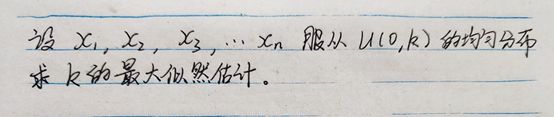 设 x₁, x₂, x₃, … xₙ 服从 U(0,k) 的均匀分布
求 k 的最大似然估计。